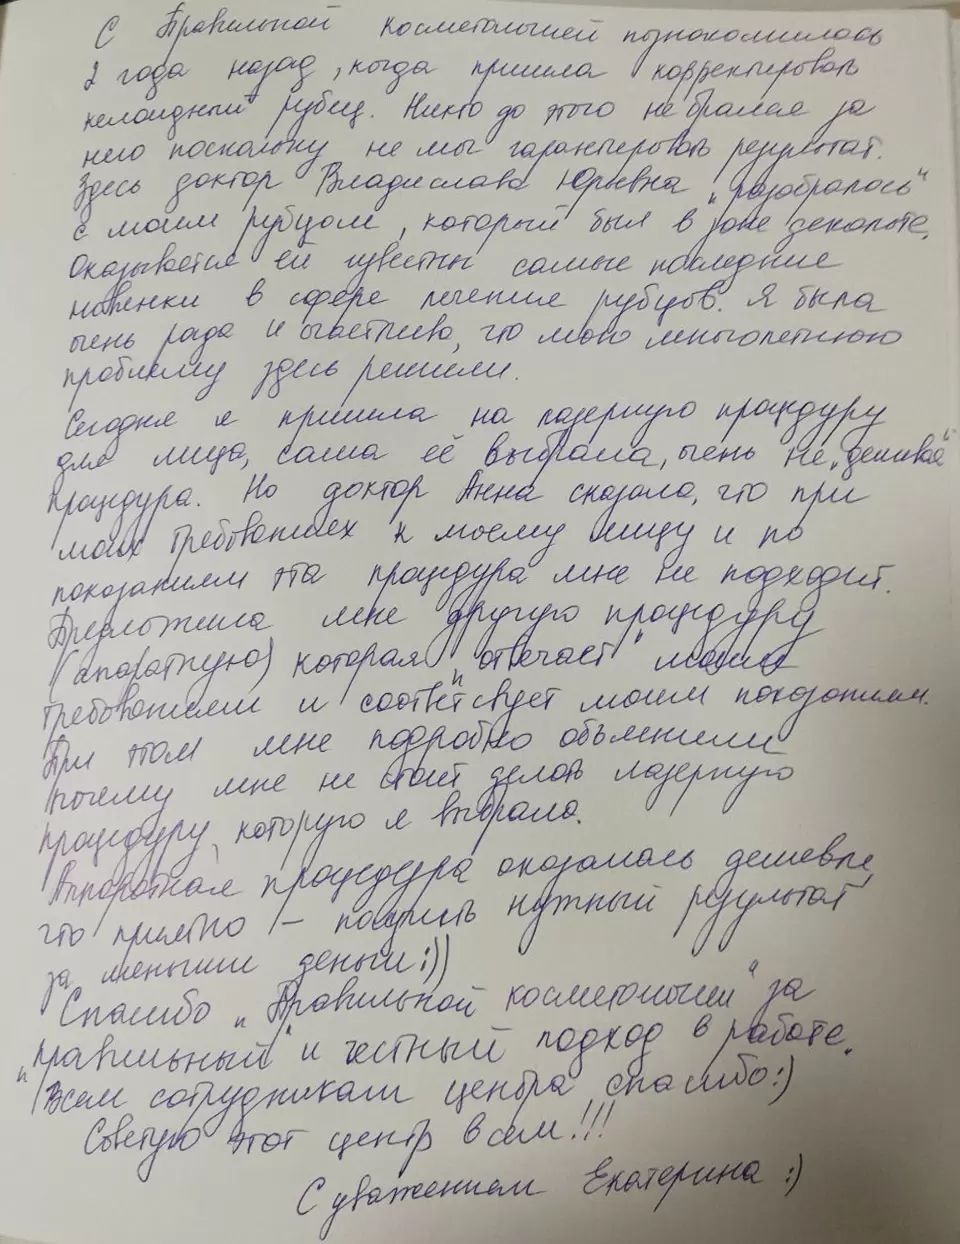 С Правильной косметологией познакомилась
2 года назад, когда пришла корректировать
келоидный рубец. Никто до этого не брался за
него поскольку не мог гарантировать результат.
Здесь доктор Владислава Юрьевна „разобралась"
с моим рубцом, который был в зоне декольте.
Оказывается ей известны самые последние
новинки в сфере лечение рубцов. Я была
очень рада и счастлива, что мою многолетнюю
проблему здесь решили.
Сегодня я пришла на лазерную процедуру
для лица, сама её выбрала, очень не „дешевая"
процедура. Но доктор Анна сказала, что при
моих требованиях к моему лицу и по
показаниям эта процедура мне не подходит.
Предложила мне другую процедуру
(апаратную) которая „отвечает" моим
требованиям и соответствует моим показаниям.
При этом мне подробно объяснили
почему мне не стоит делать лазерную
процедуру, которую я выбрала.
Аппаратная процедура оказалась дешевле,
что приятно – получить нужный результат
за меньшие деньги :))
Спасибо „Правильной косметологии" за
„правильный" и честный подход в работе.
Всем сотрудникам центра спасибо :)
Советую этот центр всем!!!
С уважением Екатерина :)